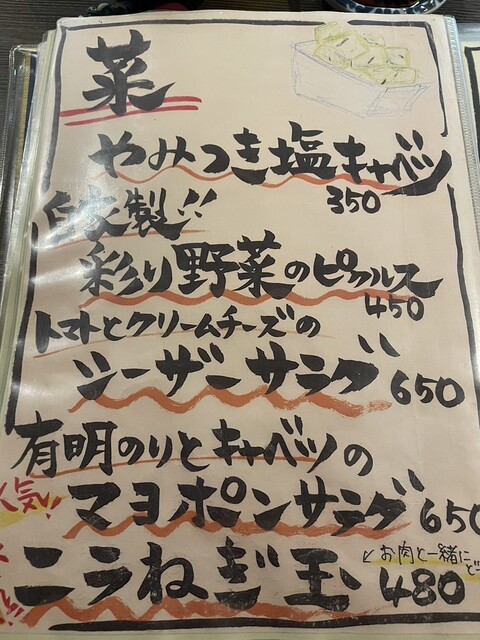 菜
やみつき塩キャベツ
350
自家製!!
彩り野菜のピクルス
450
トマトとクリームチーズの
シーザーサラダ 650
有明のりとキャベツの
人気! マヨポンサラダ 650
ニラねぎ玉 480
↙お肉と一緒にど